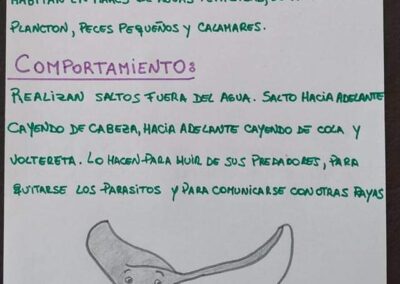 PLANCTON, PECES PEQUEÑOS Y CALAMARES.
COMPORTAMIENTO:
REALIZAN SALTOS FUERA DEL AGUA. SALTO HACIA ADELANTE
CAYENDO DE CABEZA, HACIA ADELANTE CAYENDO DE COLA Y
VOLTERETA. LO HACEN PARA HUIR DE SUS PREDADORES, PARA
QUITARSE LOS PARASITOS Y PARA COMUNICARSE CON OTRAS RAYAS